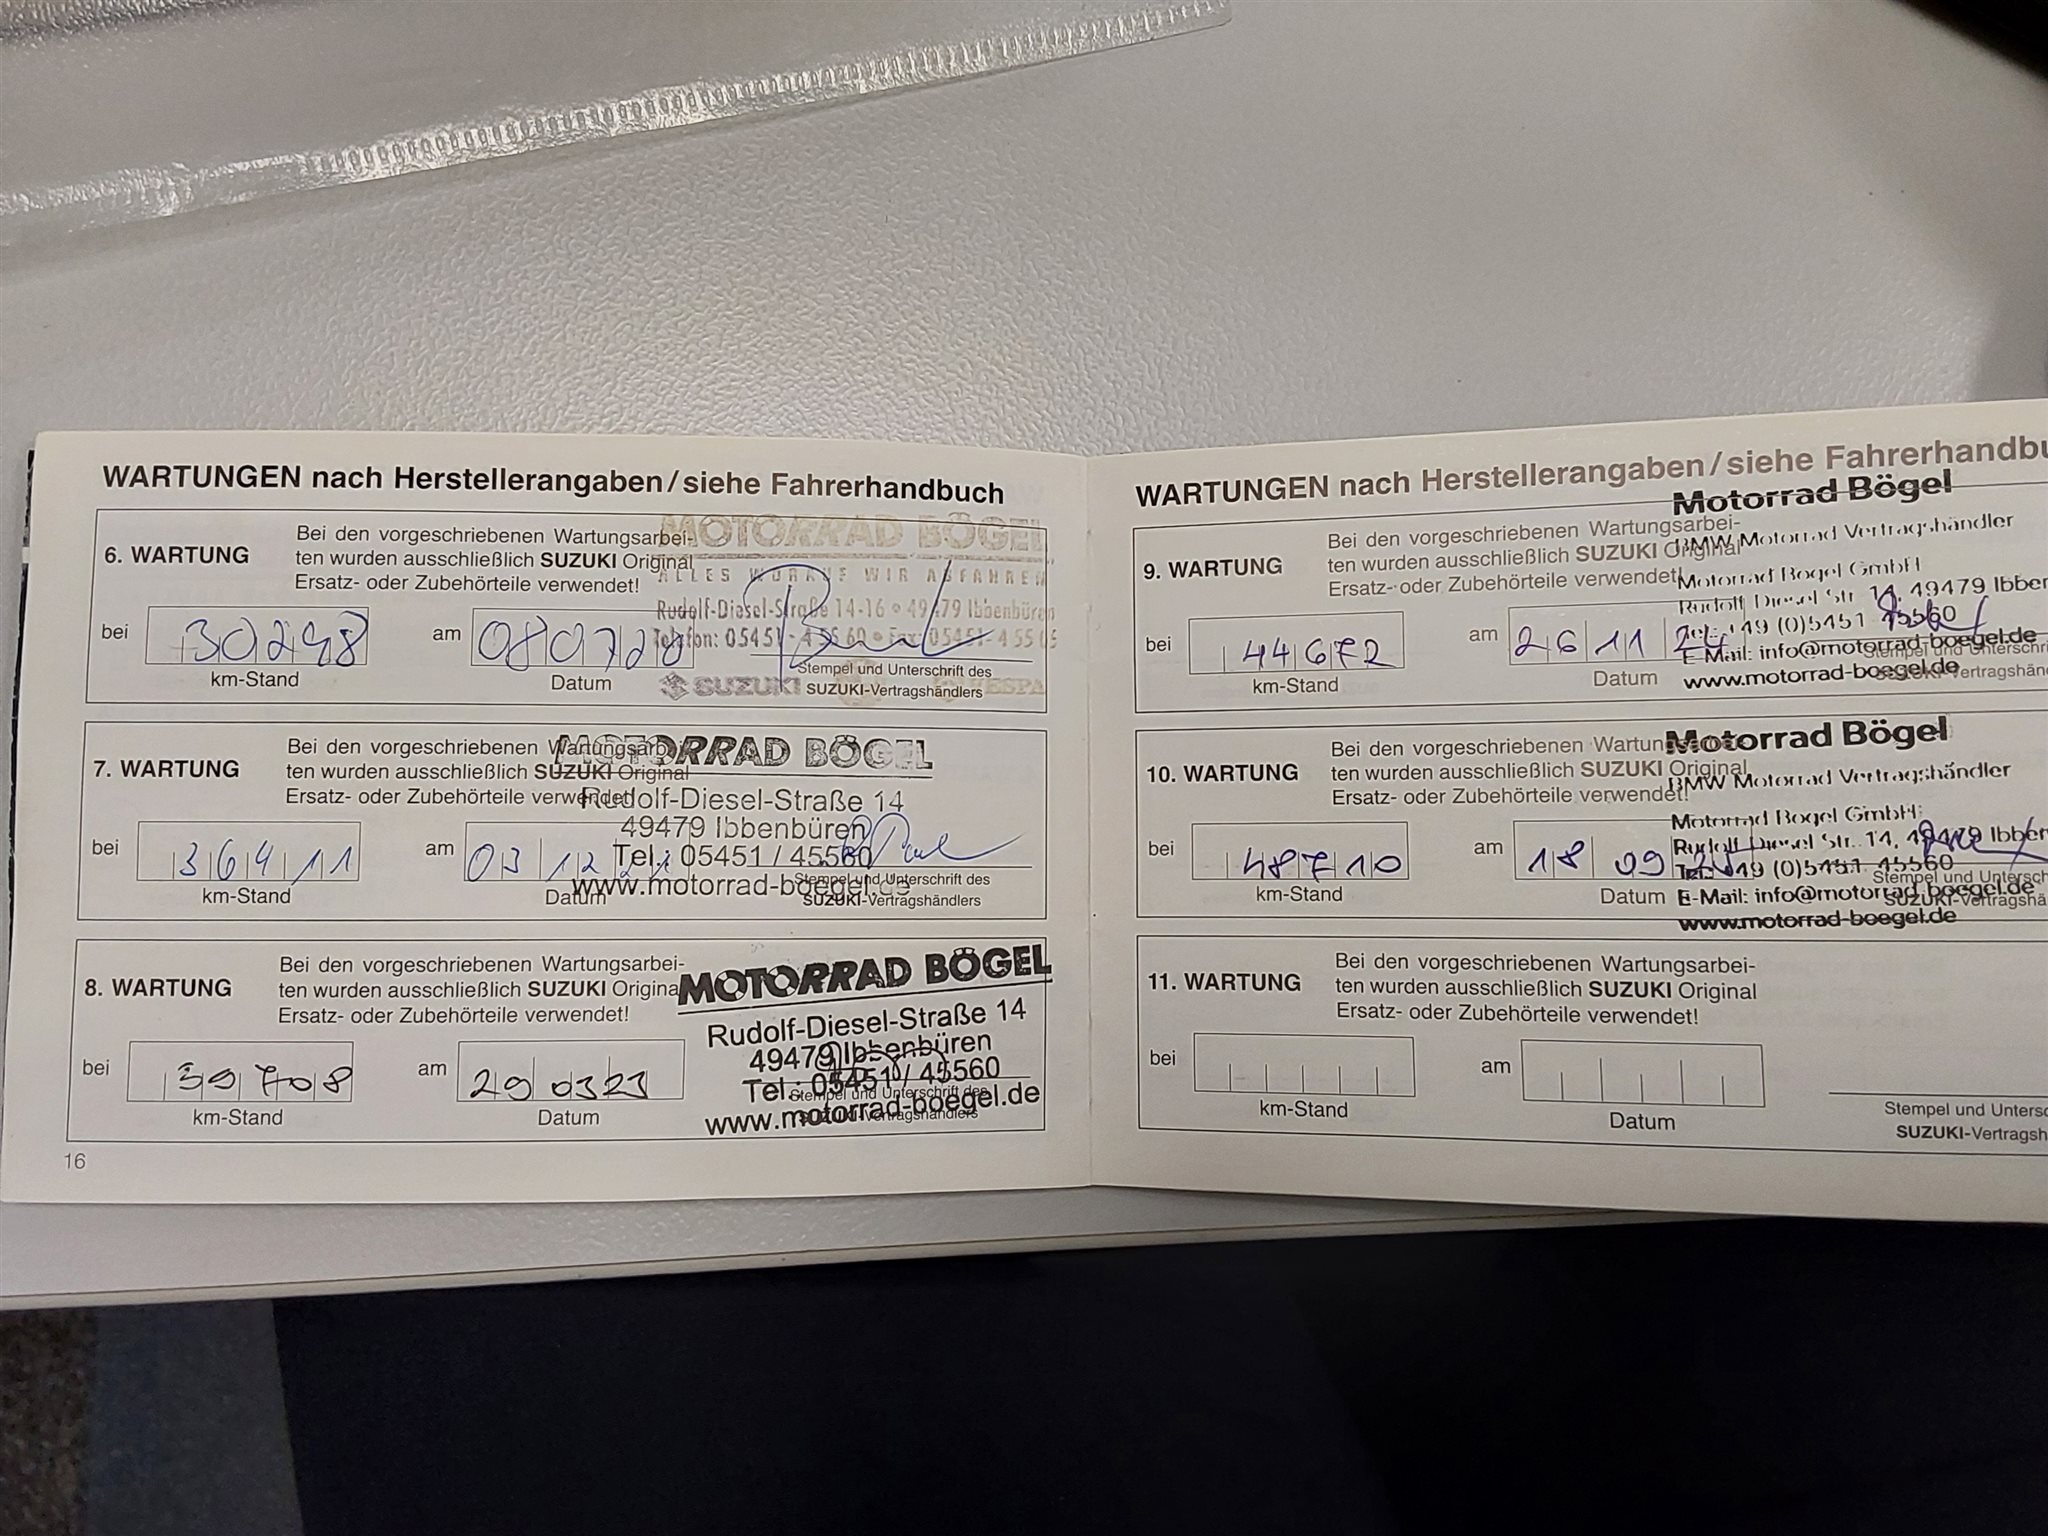 WARTUNGEN nach Herstellerangaben/siehe Fahrerhandbuch
6. WARTUNG
Bei den vorgeschriebenen Wartungsarbei-
ten wurden ausschließlich SUZUKI Original
Ersatz- oder Zubehörteile verwendet!
MOTORRAD BÖGEL
ALLES WORAUF WIR ABFAHREN
Rudolf-Diesel-Straße 14-16 • 49479 Ibbenbüren
Telefon: 05451-45560 • Fax: 05451-4 55 05
SUZUKI VESPA
bei 30298 am 080720
km-Stand Datum
Stempel und Unterschrift des
SUZUKI-Vertragshändlers
7. WARTUNG
Bei den vorgeschriebenen Wartungsarb
ten wurden ausschließlich SUZUKI Original
Ersatz- oder Zubehörteile verwendet!
MOTORRAD BÖGEL
Rudolf-Diesel-Straße 14
49479 Ibbenbüren
Tel.: 05451 / 45560
www.motorrad-boegel.de
bei 36411 am 03 12
km-Stand Datum
Stempel und Unterschrift des
SUZUKI-Vertragshändlers
8. WARTUNG
Bei den vorgeschriebenen Wartungsarbei-
ten wurden ausschließlich SUZUKI Origina
Ersatz- oder Zubehörteile verwendet!
MOTORRAD BÖGEL
Rudolf-Diesel-Straße 14
49479 Ibbenbüren
Tel.: 05451 / 45560
www.motorrad-boegel.de
bei 39708 am 290323
km-Stand Datum
Stempel und Unterschrift des
SUZUKI-Vertragshändlers
16
WARTUNGEN nach Herstellerangaben/siehe Fahrerhandbu
9. WARTUNG
Bei den vorgeschriebenen Wartungsarbei-
ten wurden ausschließlich SUZUKI Original
Ersatz- oder Zubehörteile verwendet!
Motorrad Bögel
BMW Motorrad Vertragshändler
Motorrad Bögel GmbH
Rudolf Diesel Str. 14, 49479 Ibben
Tel.: +49 (0)5451 45560
E-Mail: info@motorrad-boegel.de
www.motorrad-boegel.de
bei 44672 am 26 11 24
km-Stand Datum
Stempel und Unterschri
SUZUKI-Vertragshän
10. WARTUNG
Bei den vorgeschriebenen Wartungsarbei-
ten wurden ausschließlich SUZUKI Original
Ersatz- oder Zubehörteile verwendet!
Motorrad Bögel
BMW Motorrad Vertragshändler
Motorrad Bögel GmbH
Rudolf Diesel Str. 14, 49479 Ibben
Tel.: +49 (0)5451 45560
E-Mail: info@motorrad-boegel.de
www.motorrad-boegel.de
bei 48710 am 18 09
km-Stand Datum
Stempel und Untersch
SUZUKI-Vertragshä
11. WARTUNG
Bei den vorgeschriebenen Wartungsarbei-
ten wurden ausschließlich SUZUKI Original
Ersatz- oder Zubehörteile verwendet!
bei am
km-Stand Datum
Stempel und Untersc
SUZUKI-Vertragsh